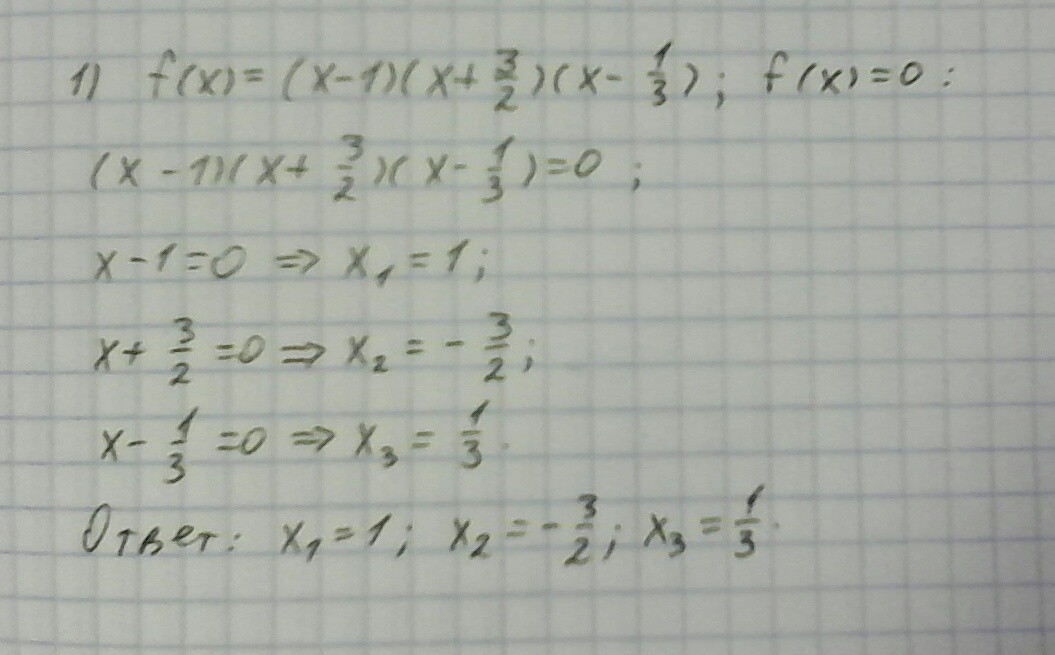 1) f(x) = (x-1)(x+ 3/2)(x- 1/3); f(x)=0:
(x-1)(x+ 3/2)(x- 1/3)=0;
x-1=0 ⇒ x₁=1;
x+ 3/2 =0 ⇒ x₂ = - 3/2;
x- 1/3 =0 ⇒ x₃ = 1/3.
Ответ: x₁=1; x₂ = - 3/2; x₃ = 1/3.